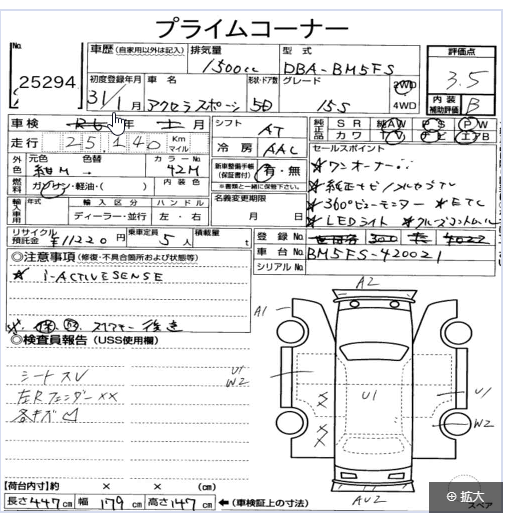 プライムコーナー
No.
25294
車歴 (自家用以外は記入)
排気量
1500cc
型式
DBA-BM5FS
評価点
3.5
初度登録年月
31年1月
車名
アクセラスポーツ
形状・ドア数
5D
グレード
15S
2WD
4WD
内装
補助評価
B
車検
年
月
シフト
AT
純正品
SR
カワ
AW
TV
PS
ナビ
PW
エアB
走行
25,140
Km
マイル
冷房
AAC
セールスポイント
★ワンオーナー
★純正ナビ/フルセグTV
★360°ビューモニター ★ETC
★LEDライト ★クルーズコントロール
外色
元色
紺M
色替
カラーNo
42M
新車整備手帳
(保証書付)
有・無
※書類と一緒に保管下さい。
燃料
ガソリン・軽油・( )
内装色
輸入車用
年式
輸入区分
ディーラー・並行
ハンドル
左・右
名義変更期限
月 日
リサイクル
預託金
¥11220円
乗車定員
5人
積載量
t
登録No
302
4022
車台No
BM5FS-420021
シリアルNo
◎注意事項 (修復・不具合箇所および状態等)
★ i-ACTIVESENSE
※ 保 取 スマキー 後送
◎検査員報告 (USS使用欄)
シートスレ
左Rフェンダー××
各キズ凹
A2
A1
U1
W2
U1
U1
W2
AU2
【荷台内寸】約 × × (cm)
長さ447cm 幅179cm 高さ147cm ←(車検証上の寸法)
スペア
拡大